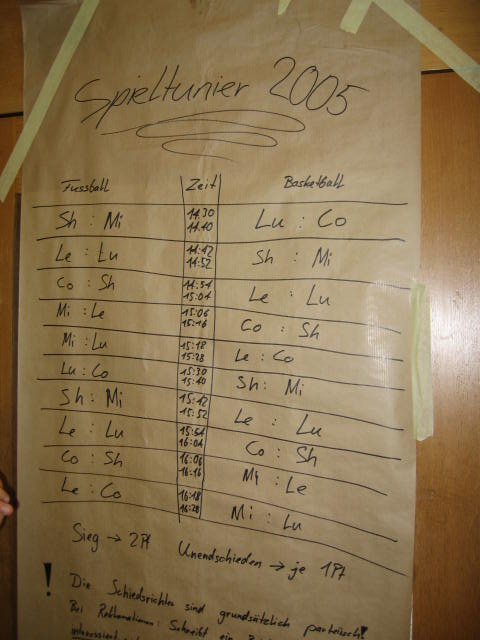 Spieltunier 2005
Fussball Zeit Basketball
Sh : Mi 14.30 14.40 Lu : Co
Le : Lu 14:42 14:52 Sh : Mi
Co : Sh 14:54 15:04 Le : Lu
Mi : Le 15:06 15:16 Co : Sh
Mi : Lu 15:18 15:28 Le : Co
Lu : Co 15:30 15:40 Sh : Mi
Sh : Mi 15:42 15:52 Le : Lu
Le : Lu 15:54 16:04 Co : Sh
Co : Sh 16:06 16:16 Mi : Le
Le : Co 16:18 16:28 Mi : Lu
Sieg → 2Pt Unendschieden → je 1Pt
! Die Schiedsrichter sind grundsätzlich parteiisch!
Bei Reklamationen : Schreibt ein